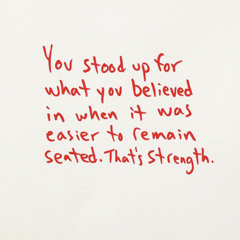 You stood up for
what you believed
in when it was
easier to remain
seated. That's strength.